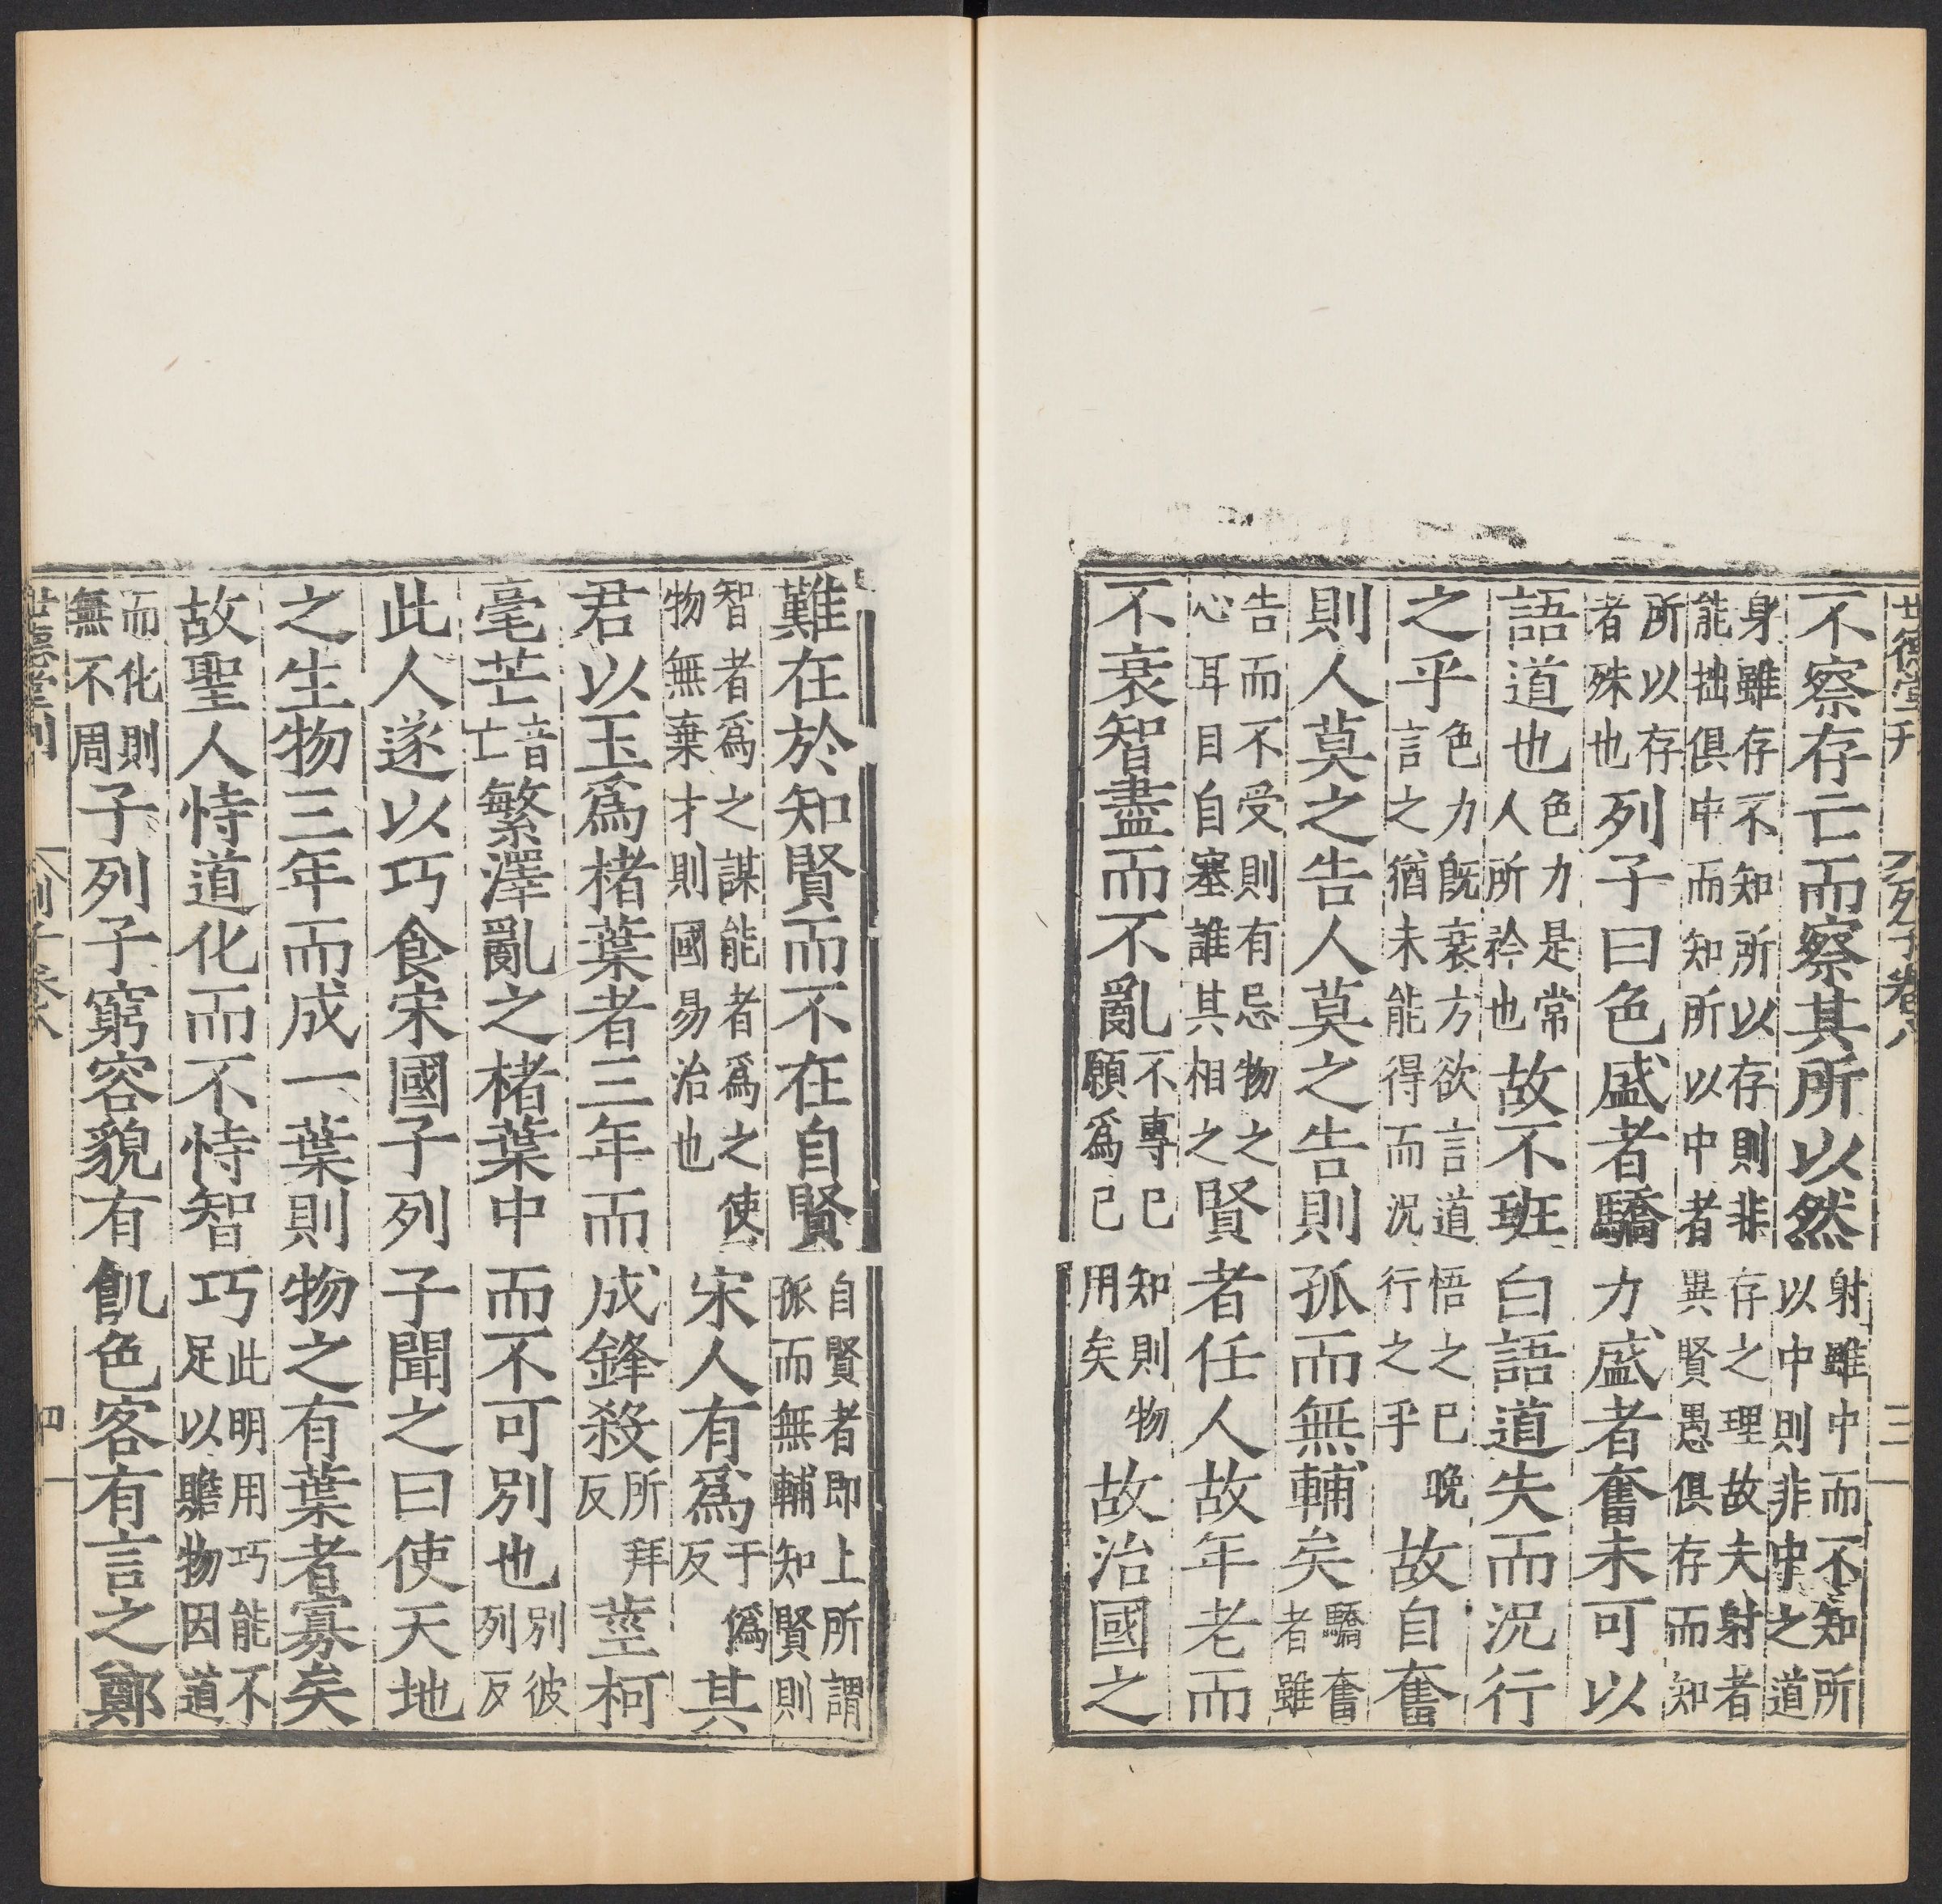 世德堂刊 列子卷八 三
不察存亡而察其所以然射雖中而不知所以中則非中之道
身雖存不知所以存則非存之理故夫射者能拙俱中而知所以中者異賢愚俱存而知
所以存者殊也列子曰色盛者驕力盛者奮未可以
語道也色力是常人所矜也故不班白語道失而況行
之乎色力既衰方欲言道悟之已晚言之猶未能得而況行之乎故自奮
則人莫之告人莫之告則孤而無輔矣驕奮者雖
告而不受則有忌物之心耳目自塞誰其相之賢者任人故年老而
不衰智盡而不亂不專已知則物願爲已用矣故治國之
難在於知賢而不在自賢自賢者即上所謂孤而無輔知賢則
智者爲之謀能者爲之使物無棄才則國易治也宋人有爲于僞反其
君以玉爲楮葉者三年而成鋒殺所拜反莖柯
毫芒音亡繁澤亂之楮葉中而不可別也別彼列反
此人遂以巧食宋國子列子聞之曰使天地
之生物三年而成一葉則物之有葉者寡矣
故聖人恃道化而不恃智巧此明用巧能不足以贍物因道
而化則無不周子列子窮容貌有飢色客有言之鄭
世德堂刊 列子卷八 四